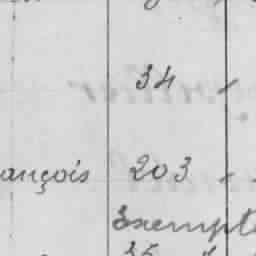 34
ançois 203
Exempt
35